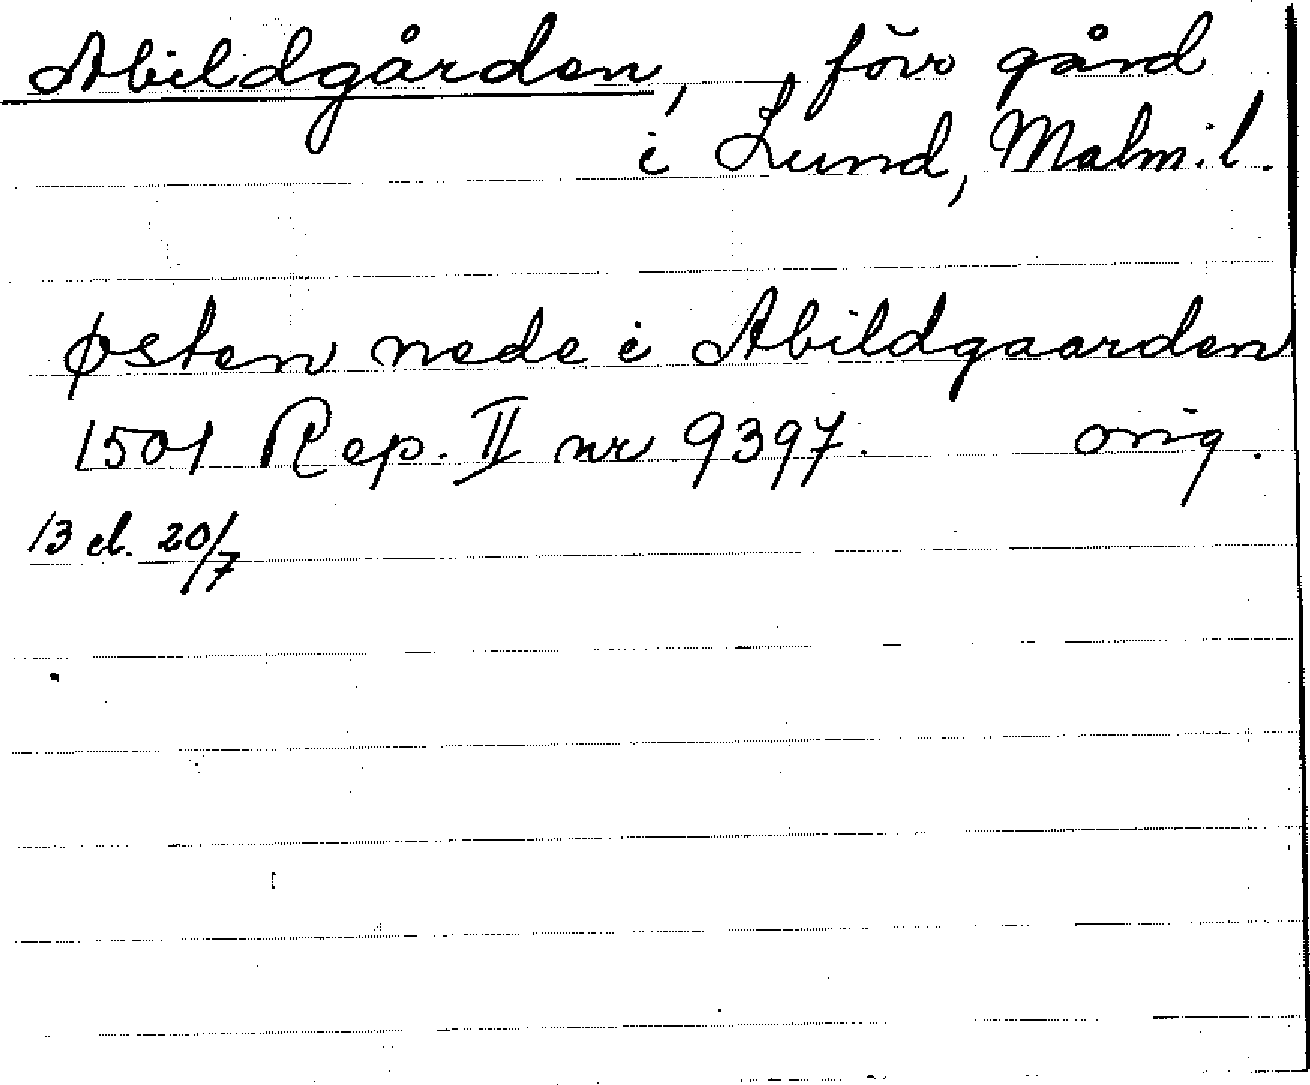 Abildgården, förv gård
i Lund, Malm.l.
østen nede i Abildgaarden
1501 Rep. II nr 9397. orig.
13 cl. 20/7